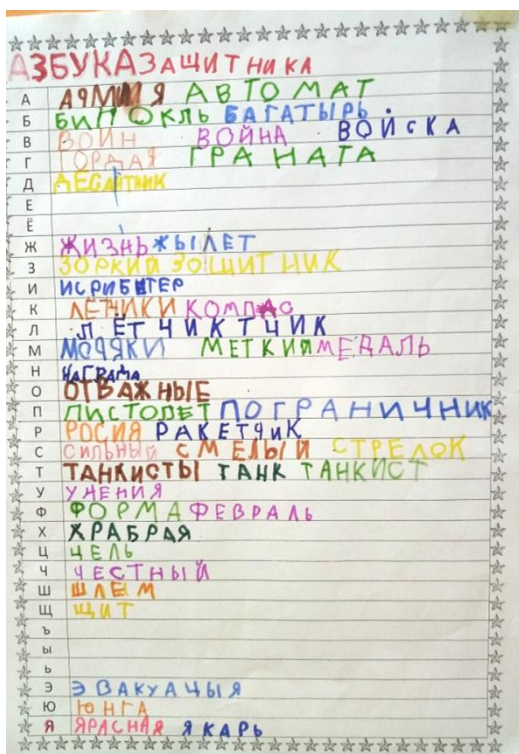 АЗБУКА ЗАЩИТНИКА
А АРМИЯ АВТОМАТ
Б БИПОКЛЬ БАГАТЫРЬ.
В ВОИН ВОЙНА ВОЙСКА
Г ГОРДАЯ ГРАНАТА
Д ДЕСАНТНИК
Е
Ё
Ж ЖИЗНЬ ЖЫЛЕТ
З ЗОРКИЙ ЗОЩИТНИК
И ИСРИБИТЕР
К ЛЕТЧИКИ КОМПАС
Л ЛЁТЧИКТЧИК
М МОРЯКИ МЕТКИЙ МЕДАЛЬ
Н НАГРАДА
О ОТВАЖНЫЕ
П ПИСТОЛЕТ ПОГРАНИЧНИК
Р РОСИЯ РАКЕТЧИК
С СИЛЬНЫЙ СМЕЛЫЙ СТРЕЛОК
Т ТАНКИСТЫ ТАНК ТАНКИСТ
У УЧЕНИЯ
Ф ФОРМА ФЕВРАЛЬ
Х ХРАБРАЯ
Ц ЦЕЛЬ
Ч ЧЕСТНЫЙ
Ш ШЛЕМ
Щ ЩИТ
Ъ
Ы
Ь
Э ЭВАКУАЦЫЯ
Ю ЮНГА
Я ЯРАСНАЯ ЯКАРЬ